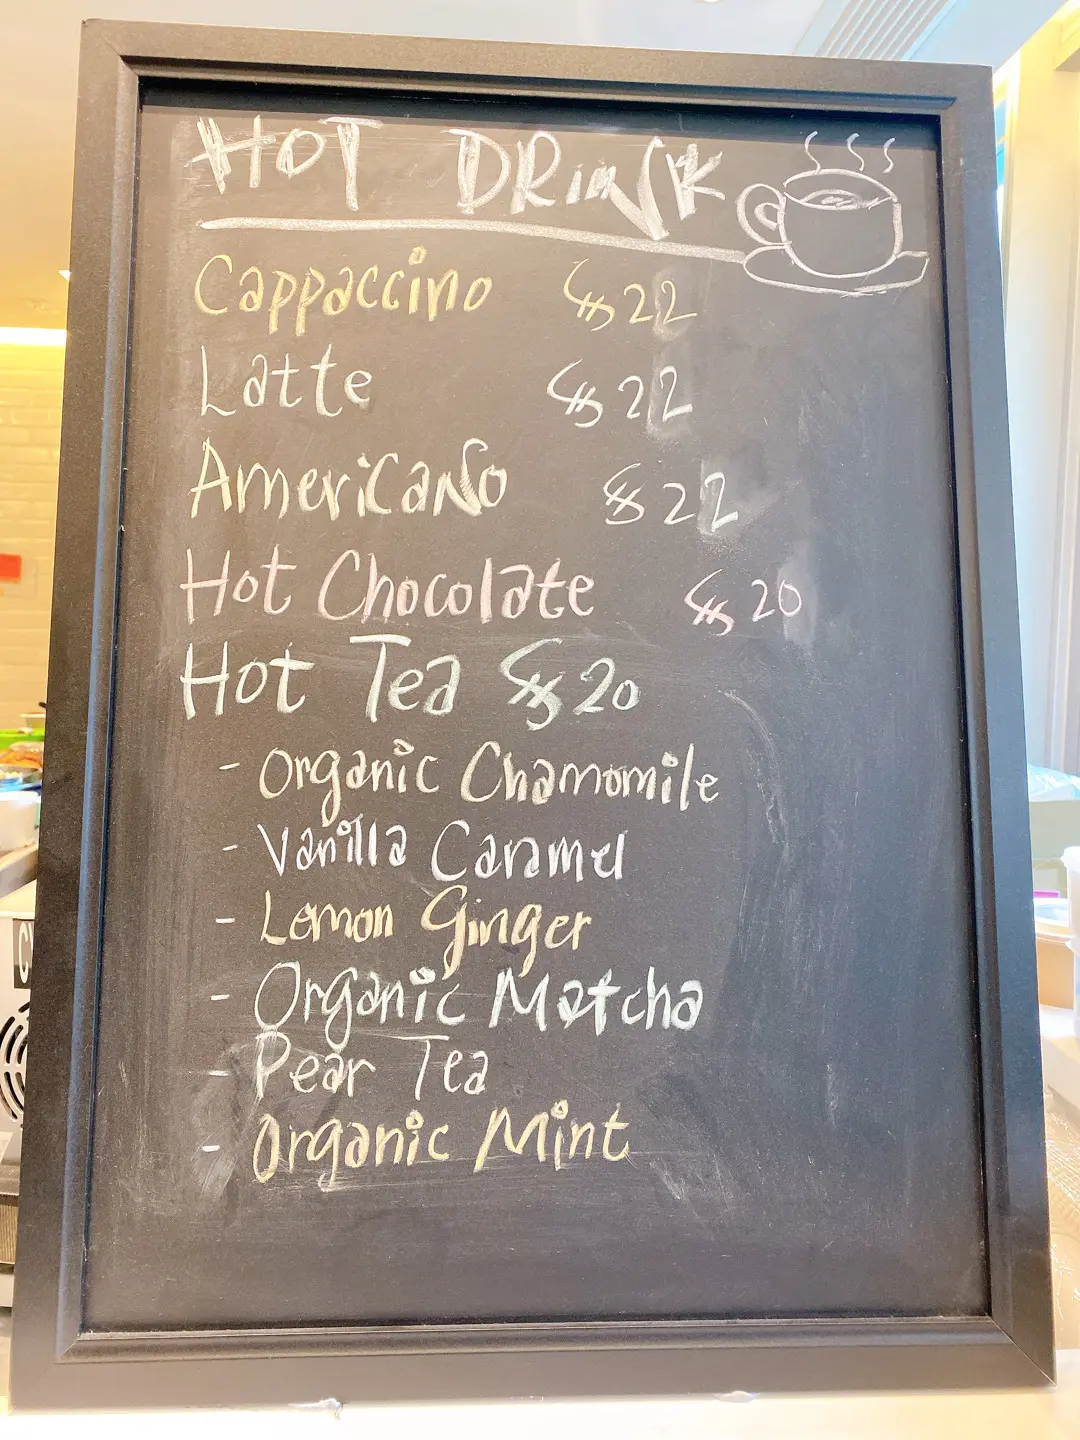 HOT DRiNK
Cappaccino $22
Latte $22
Americano $22
Hot Chocolate $20
Hot Tea $20
- Organic Chamomile
- Vanilla Caramel
- Lemon Ginger
- Organic Matcha
- Pear Tea
- Organic Mint